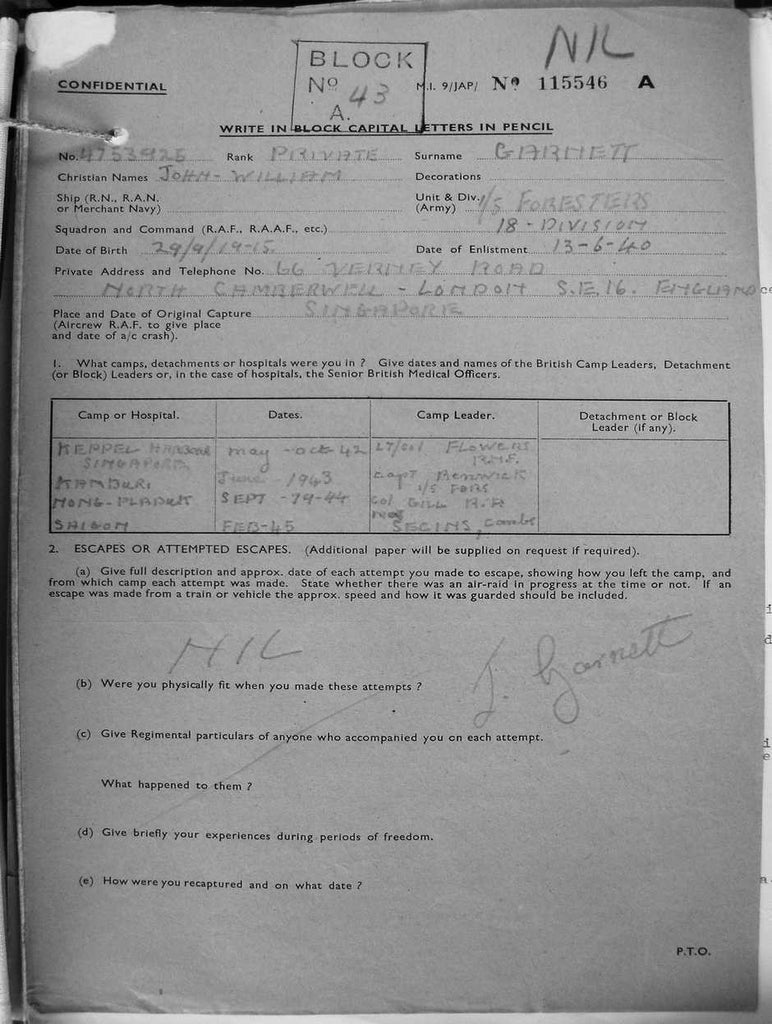 NIL
BLOCK
Nº 43
A.
CONFIDENTIAL
M.I. 9/JAP/ Nº 115546 A
WRITE IN BLOCK CAPITAL LETTERS IN PENCIL
No. 4753925 Rank PRIVATE Surname GARNETT
Christian Names JOHN - WILLIAM Decorations
Ship (R.N., R.A.N. or Merchant Navy)
Unit & Div. (Army) 1/5 FORESTERS
Squadron and Command (R.A.F., R.A.A.F., etc.) 18 - DIVISION
Date of Birth 29/9/1915 Date of Enlistment 13-6-40
Private Address and Telephone No. 66 VERNEY ROAD
NORTH CAMBERWELL - LONDON S.E.16. ENGLAND
Place and Date of Original Capture SINGAPORE
(Aircrew R.A.F. to give place
and date of a/c crash).
1. What camps, detachments or hospitals were you in ? Give dates and names of the British Camp Leaders, Detachment
(or Block) Leaders or, in the case of hospitals, the Senior British Medical Officers.
Camp or Hospital. Dates. Camp Leader. Detachment or Block
Leader (if any).
KEPPEL HARBOUR may - oct 42 Lt/Col FLOWERS
SINGAPORE R.N.F.
KANBURI June - 1943 Capt
1/5 FORS
NONG-PLADUK SEPT - 44 Col GILL
SAIGON FEB-45
2. ESCAPES OR ATTEMPTED ESCAPES. (Additional paper will be supplied on request if required).
(a) Give full description and approx. date of each attempt you made to escape, showing how you left the camp, and
from which camp each attempt was made. State whether there was an air-raid in progress at the time or not. If an
escape was made from a train or vehicle the approx. speed and how it was guarded should be included.
NIL
J. Garnett
(b) Were you physically fit when you made these attempts ?
(c) Give Regimental particulars of anyone who accompanied you on each attempt.
What happened to them ?
(d) Give briefly your experiences during periods of freedom.
(e) How were you recaptured and on what date ?
P.T.O.